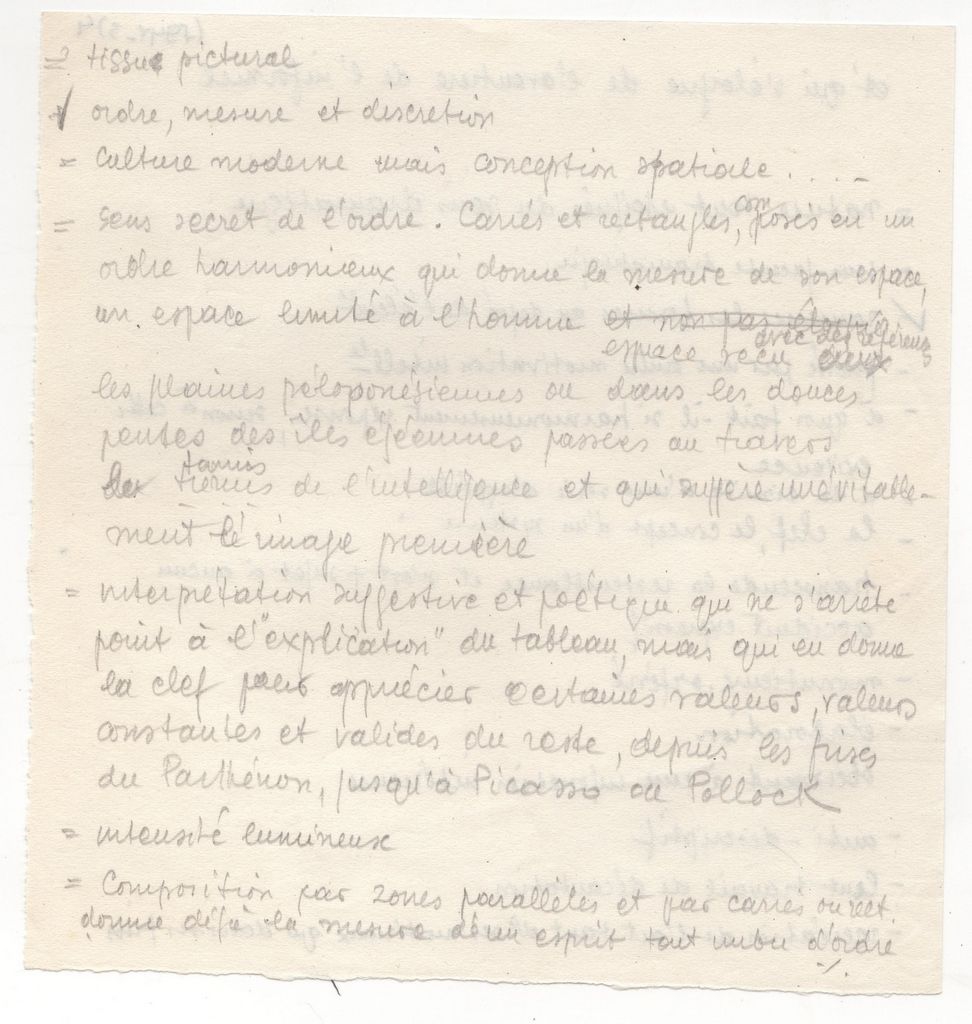 = tissus pictural
√ ordre, mesure et discretion
= Culture moderne mais conception spatiale . . . . -
= Sens secret de l'ordre. Carrés et rectangles, composés en un
ordre harmonieux qui donne la mesure de son espace,
un espace limité à l'homme et non pas
espace vécu avec des
les plaines péloponésiennes ou dans les douces
pentes des îles égéennes passées au travers
tamis de l'intelligence et qui suggère inévitable-
ment l'image première
= interprétation suggestive et poétique qui ne s'arrête
point à l'"explication" du tableau, mais qui en donne
la clef pour apprécier certaines valeurs, valeurs
constantes et valides du reste, depuis les frises
du Parthénon, jusqu'à Picasso ou Pollock
= intensité lumineux
= Composition par zones parallèles et par carrés ou rect.
donne déjà la mesure d'un esprit tout imbu d'ordre
./.